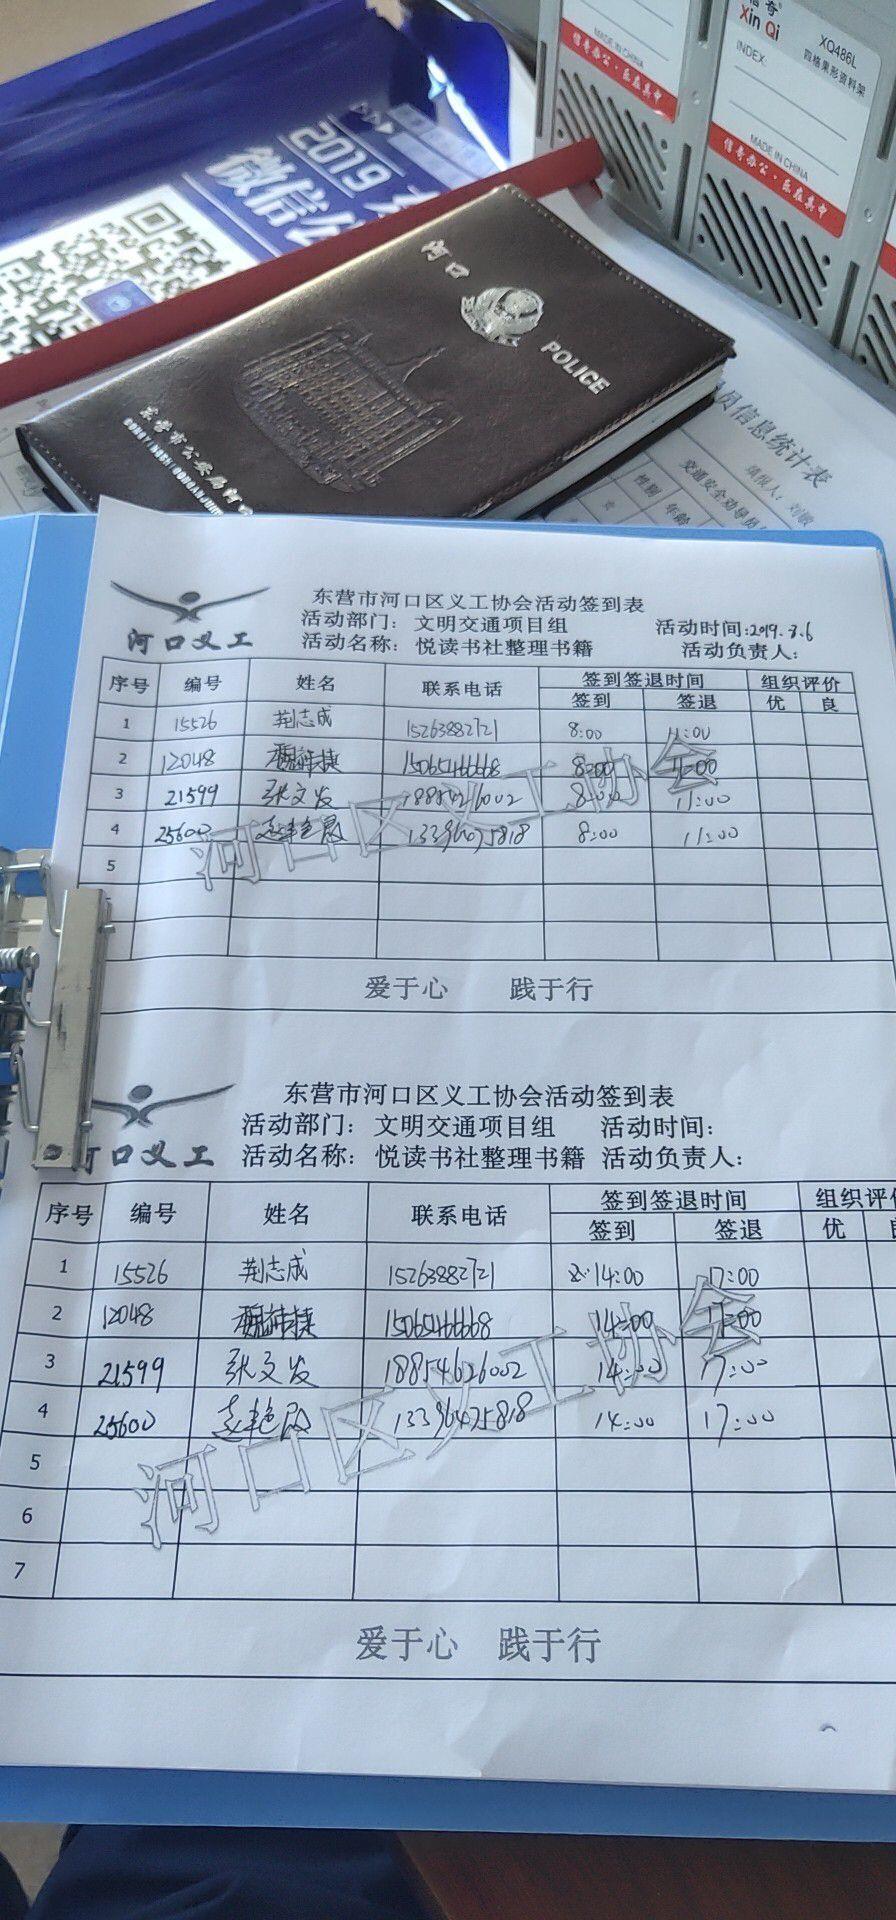 信奇
Xin Qi
XQ486L
四格果形资料架
INDEX:
MADE IN CHINA
信奇办公·乐在其中
MADE IN CHINA
信奇办公·乐在其中
2019
微信公
河口
POLICE
东营市公安局河口
员信息统计表
填报人: 刘敏
交通安全劝导员
性别
年龄
女
河口义工
东营市河口区义工协会活动签到表
活动部门: 文明交通项目组 活动时间:2019.3.6
活动名称: 悦读书社整理书籍 活动负责人:
序号 编号 姓名 联系电话 签到签退时间 组织评价
签到 签退 优 良
1 15526 荆志成 15263882721 8:00 11:00
2 12048 15065466668 8:00 11:00
3 21599 张文发 18854626002 8:00 11:00
4 25600 赵艳 13396475818 8:00 11:00
5
河口区义工协会
爱于心 践于行
河口义工
东营市河口区义工协会活动签到表
活动部门: 文明交通项目组 活动时间:
活动名称: 悦读书社整理书籍 活动负责人:
序号 编号 姓名 联系电话 签到签退时间 组织评价
签到 签退 优
1 15526 荆志成 15263882721 14:00 17:00
2 12048 15065466668 14:00 17:00
3 21599 张文发 18854626002 14:00 17:00
4 25600 赵艳 13396475818 14:00 17:00
5
6
7
河口区义工协会
爱于心 践于行